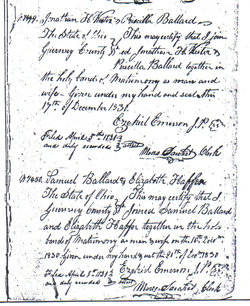 Jonathan H. Wester & Priscilla Ballard
The State of Ohio, } This may certify that I join
Guernsey County } ed Jonathan H. Wester &
Priscilla Ballard together in
the holy bonds of Matrimony as man and
wife. Given under my hand and seal this
17th of December 1830.
Ezekiel Emerson J.P.
Filed April 5th 1831
and duly recorded
Moses Sarchet, Clerk
Samuel Ballard & Elizabeth Haffer
The State of Ohio, } This may certify that I
Guernsey County } joined Samuel Ballard
and Elizabeth Haffer together in the holy
bonds of Matrimony as man & wife on the 16th Dec
1830 given under my hand & seal this 21st of Dec 1830
Ezekiel Emerson J.P.
Filed April 5 1831
and duly recorded
Moses Sarchet, Clerk